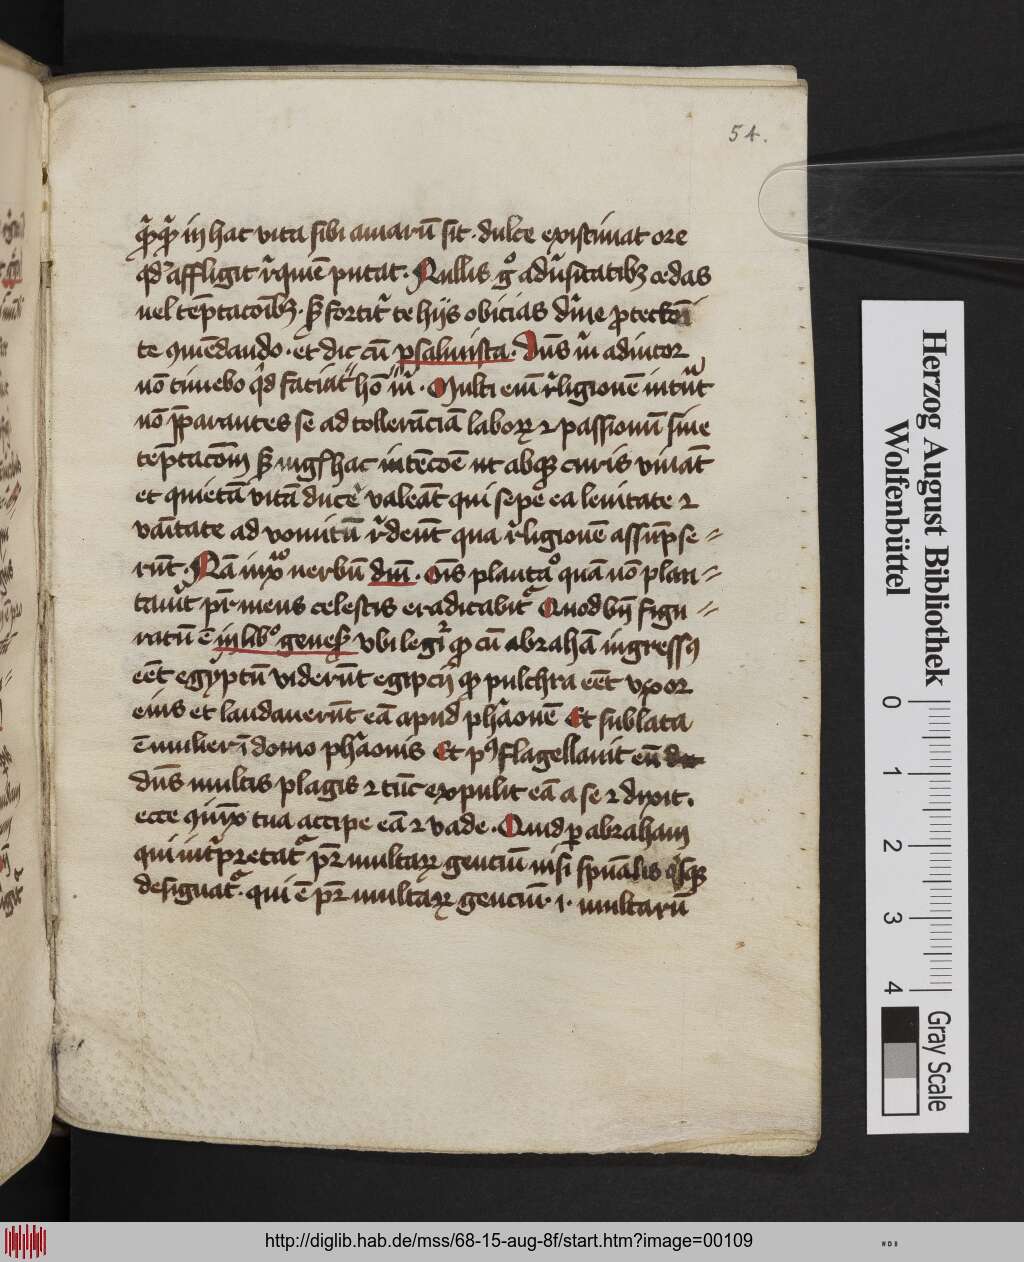 54.
qͥqͥd in hac vita sibi amarū sit. dulce existimat ore
qd᷑ affligit r̄quiē putat. Nullis gͦ adũsitatibꝫ cedas
uel tēptacōibꝫ. sꝫ fortit᷑ te hijs obicias diuīe ꝓteckōi
te 9mēdando. et dic cū psalmista. Dn̄s m̄ adiutor
nō timebo qͥd faciat hō m̄. Multi em̄ r̄ligionē intrāt
nō p̄parantes se ad tollerāciā laborꝝ ⁊ passionū siue
tēptacōm̄ sꝫ mgͥ hac intēcōe ut absqꝫ curis viuāt
et quietā vitā duce valeāt qui sepe ea leuitate ⁊
vāitate ad vomitū r̄deūt qua r̄ligionē assūpse⸗
rūt. Nā iuxͣ uerbū dn̄i. Om̄s plantaͦ quā nō plan⸗
tauit pr̄ meus celestis eradicabit᷑ Quod bn̄ figu⸗
ratū ē in libͦ genesꝭ vbi legit᷑ ꝙ cū abrahā ingressꝰ
eēt egyptū viderūt egipcij ꝙ pulchra eēt vxor
eius et laudauerūt eā apud pharaonē Et sublata
ē mulier ī domo pharaonis Et pꝰ flagellauit eū
dn̄s multis plagis ⁊ tūc expulit eā a se ⁊ dixit.
ecce 9iūx tua accipe eā ⁊ vade. Quid ꝑ abraham
qui int᷑pretat᷑ pr̄ multaꝝ genciū nisi spūalis qͥsqꝫ
designat᷑. qui ē pr̄ multaꝝ genciū .i. multarū
Herzog August Bibliothek
Wolfenbüttel
0 1 2 3 4
Gray Scale
http://diglib.hab.de/mss/68-15-aug-8f/start.htm?image=00109